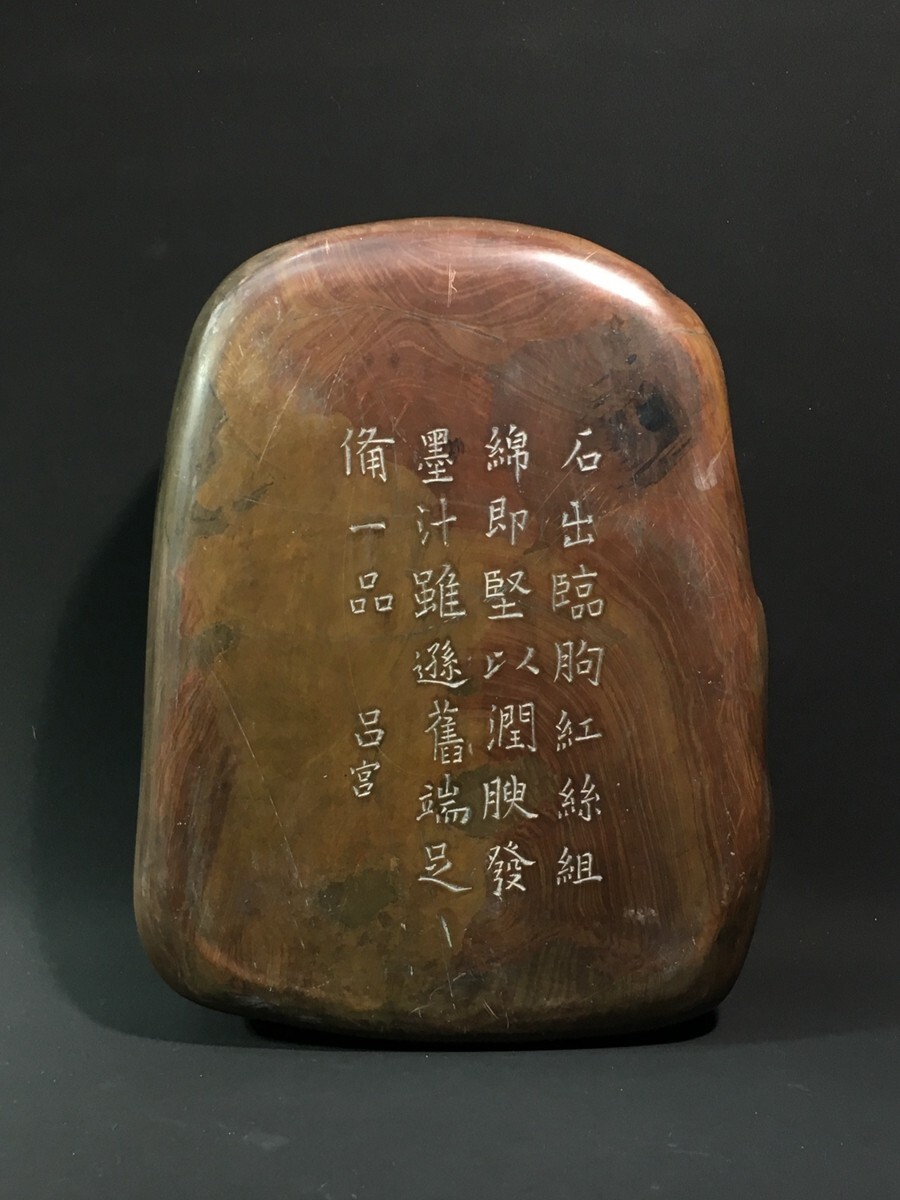 石出臨朐紅絲組
綿即堅以潤腴發
墨汁雖遜舊端足
備一品 呂宮